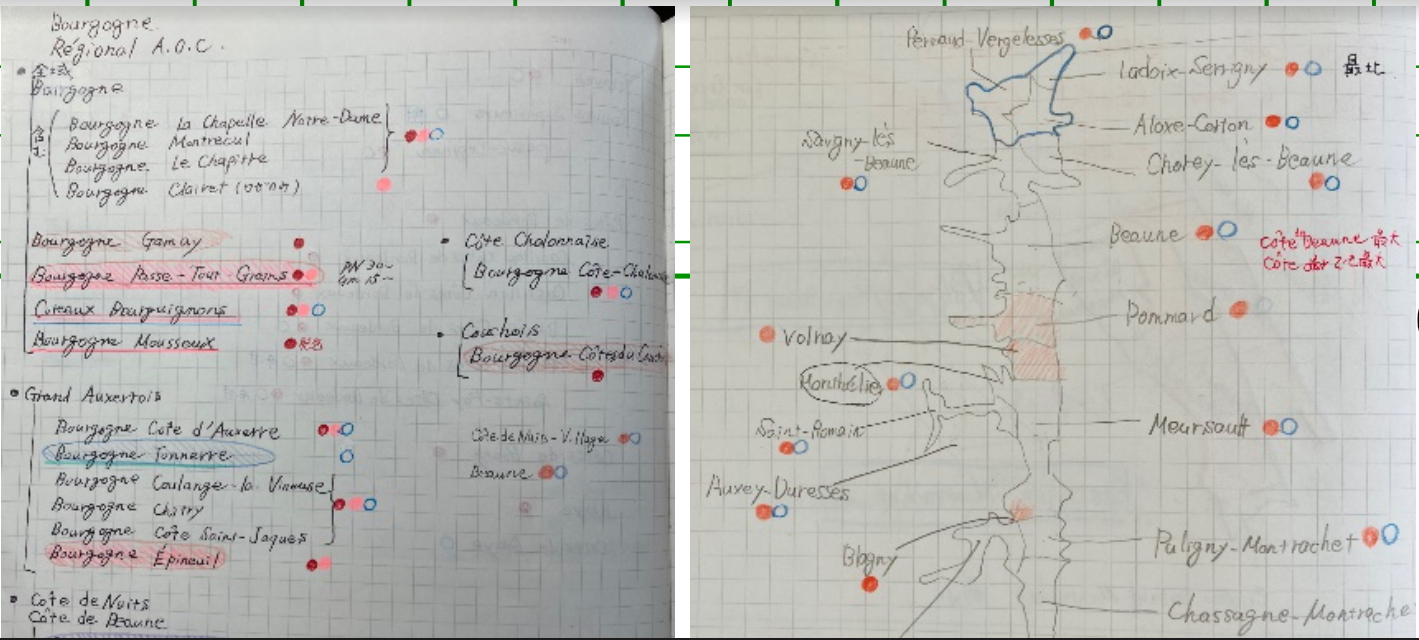 Bourgogne
Régional A.O.C.
• 全域
Bourgogne
含む
Bourgogne La Chapelle Notre-Dame
Bourgogne Montrecul
Bourgogne Le Chapitre
Bourgogne Clairet (ロゼのみ)
Bourgogne Gamay
Bourgogne Passe-Tout-Grains
PN 30~
Gm 15~
Coteaux Bourguignons
Bourgogne Mousseux
発泡
• Grand Auxerrois
Bourgogne Côte d'Auxerre
Bourgogne Tonnerre
Bourgogne Coulange-la-Vineuse
Bourgogne Chitry
Bourgogne Côte Saint-Jaques
Bourgogne Épineuil
• Côte de Nuits
Côte de Beaune
• Côte Chalonnaise
Bourgogne Côte-Chalonnaise
• Couchois
Bourgogne Côtes du Couchois
Côte de Nuits-Village
Beaune
Pernand-Vergelesses
Ladoix-Serrigny 最北
Aloxe-Corton
Savigny-lès
-Beaune
Chorey-lès-Beaune
Beaune
Côte Beaune 最大
Côte d'or で2最大
Pommard
Volnay
Monthélie
Saint-Romain
Meursault
Auxey-Duresses
Blagny
Puligny-Montrachet
Chassagne-Montrache